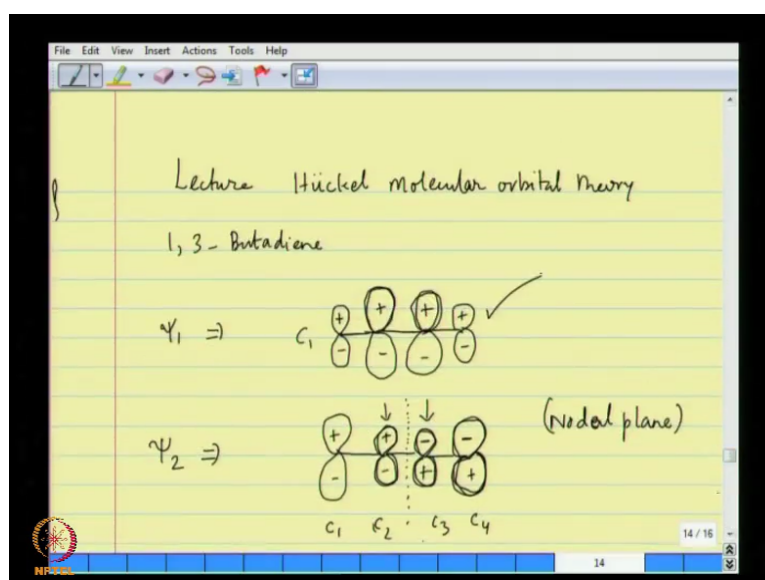 File Edit View Insert Actions Tools Help
Lecture Hückel molecular orbital theory
1, 3 - Butadiene
Ψ₁ ⇒ C₁ + + + +
- - - -
Ψ₂ ⇒ + + - - (Nodal plane)
- - + +
C₁ C₂ C₃ C₄
14 / 16
14
NPTEL